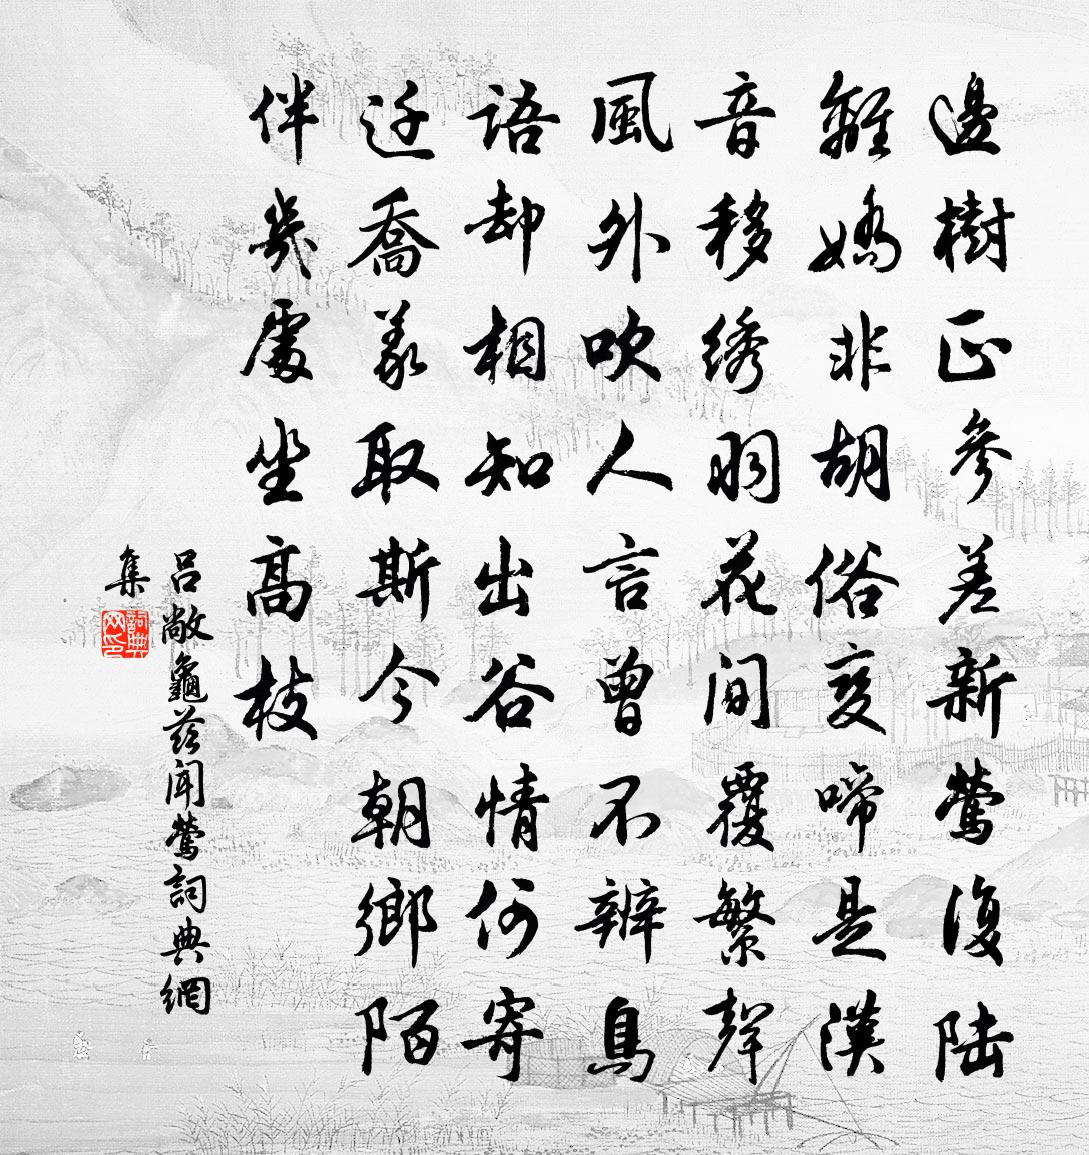 邊樹正參差新鶯復陸
離嬌非胡俗變啼是漢
音移綉羽花間覆繁聲
風外吹人言曾不辨鳥
語却相知出谷情何寄
迁喬義取斯今朝鄉陌
伴幾處坐高枝
呂敞龜茲聞鶯詞典網
集
詞典
网印